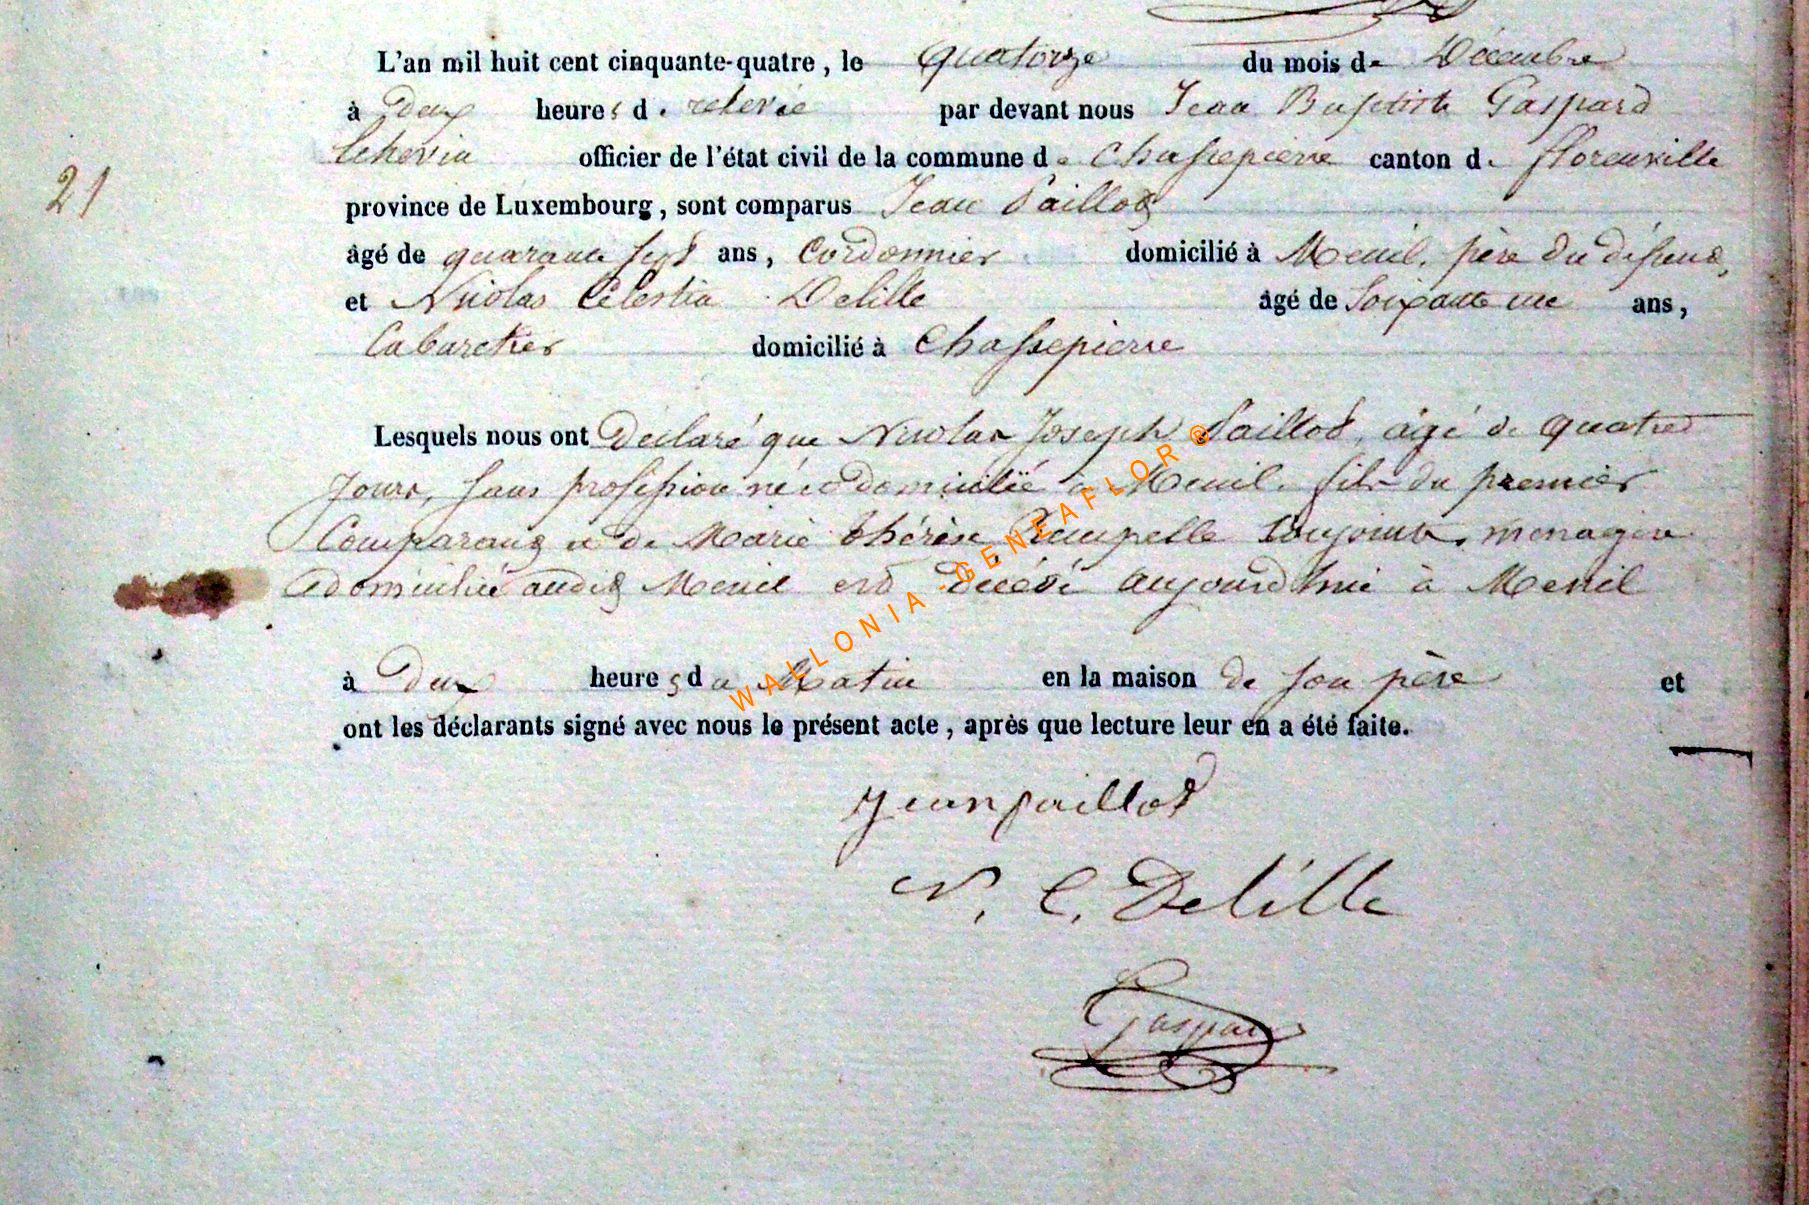 L'an mil huit cent cinquante-quatre, le quatorze du mois de Décembre
à deux heures de relevée par devant nous Jean Baptiste Gaspard
Echevin officier de l'état civil de la commune de Chassepierre canton de florenville
province de Luxembourg, sont comparus Jean Paillot
âgé de quarante sept ans, Cordonnier domicilié à Menil, père du défunt,
et Nicolas Célestin Delille âgé de soixante un ans,
Cabaretier domicilié à Chassepierre
21
Lesquels nous ont déclaré que Nicolas Joseph Paillot, âgé de quatre
jours, sans profession né et domicilié à Menil, fils du premier
Comparant et de Marie thérèse conjoints, menagère
domiciliée audit Menil est décédé aujourd'hui à Menil
à deux heures du Matin en la maison de son père et
ont les déclarants signé avec nous le présent acte, après que lecture leur en a été faite.
WALLONIA GENEAFLOR ®
jean paillot
N. C. Delille
Gaspard